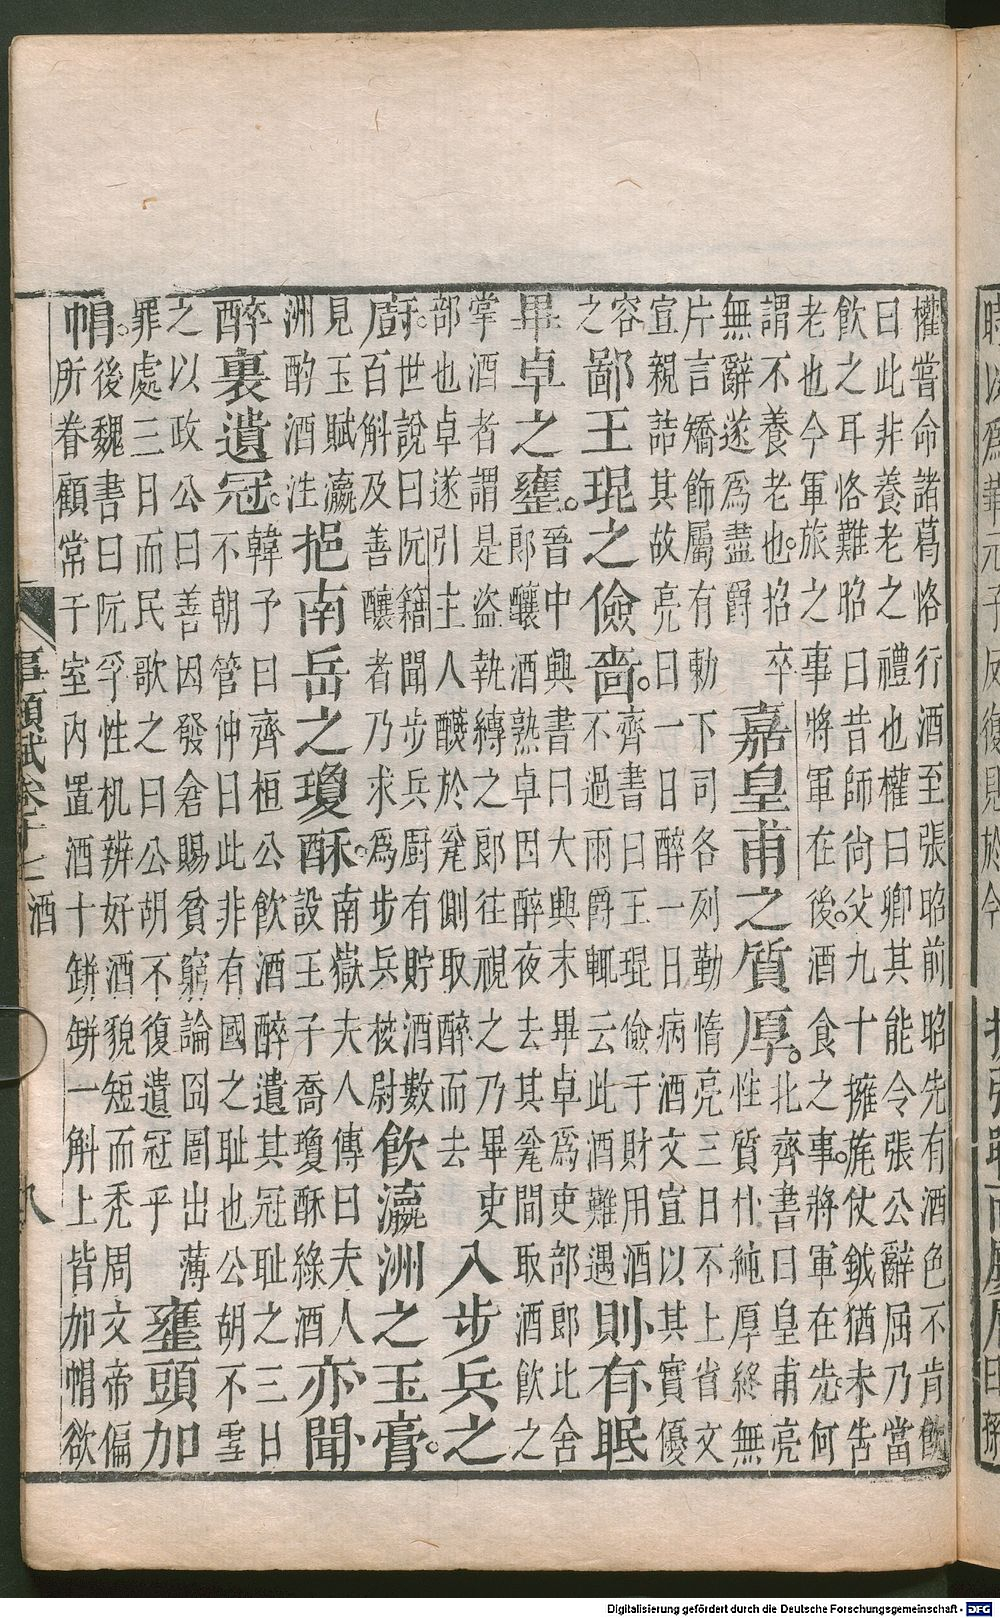 權嘗命諸葛恪行酒至張昭前昭先有酒色不肯飲
曰此非養老之禮也權曰卿其能令張公辭屈乃當
飲之耳恪難昭曰昔師尚父九十擁旄仗鉞猶未告
老也今軍旅之事將軍在後。酒食之事。將軍在先何
謂不養老也。昭卒
無辭遂為盡爵
嘉皇甫之質厚。
北齊書曰皇甫亮
性質朴純厚終無
片言矯飾屬有勅下司各列勤惰亮三日不上省文
宣親詰其故亮曰一日醉一日病酒文宣以其實優
容
之
鄙王琨之儉嗇。
齊書曰王琨儉于財用酒
不過兩爵輒云此酒難遇
則有眠
畢卓之甕。
晉中興書曰大興末畢卓為吏部郎比舍
郎釀酒熟卓因醉夜去其甕間取酒飲之
掌酒者謂是盜執縛之郎往視之乃畢吏
部也卓遂引主人醼於甕側取醉而去
入步兵之
廚。
世說曰阮籍聞步兵廚有貯酒數
百斛及善釀者乃求為步兵校尉
飲瀛洲之玉膏。
見玉賦瀛
洲酌酒泩
挹南岳之瓊酥。
南嶽夫人傳曰夫人
設王子喬瓊酥綠酒
亦聞
醉裏遺冠。
韓子曰齊桓公飲酒醉遺其冠耻之三日
不朝管仲曰此非有國之耻也公胡不雪
之以政公曰善因發倉賜貧窮論囹圄出薄
罪處三日而民歌之曰公胡不復遺冠乎
甕頭加
帽。
後魏書曰阮孚性机辨好酒貌短而禿周文帝偏
所眷顧常于室內置酒十缾缾一斛上皆加帽欲
事類賦卷十七 酒
八
Digitalisierung gefördert durch die Deutsche Forschungsgemeinschaft - DFG